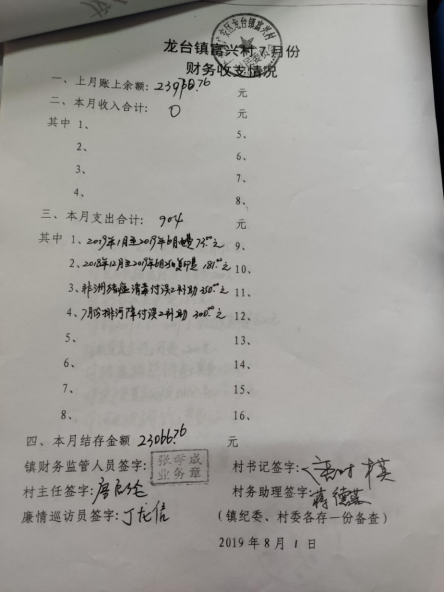 龙台镇富兴村7月份
财务收支情况
一、上月账上余额：23970.76 元
二、本月收入合计：0 元
其中 1、 5、
2、 6、
3、 7、
4、 8、
三、本月支出合计：904 元
其中 1、2019年1月至2019年6月电费 73.00元 9、
2、2018年12月至2019年6月 复印是 181.00元 10、
3、非洲猪瘟消毒付误工补助 350.00元 11、
4、7月份排河障付误工补助 300.00元 12、
5、 13、
6、 14、
7、 15、
8、 16、
四、本月结存金额 23066.76 元
镇财务监管人员签字： 张学成 业务章 村书记签字：
村主任签字： 村务助理签字：蒋德
廉情巡访员签字：丁龙信 （镇纪委、村委各存一份备查）
2019年8月1日